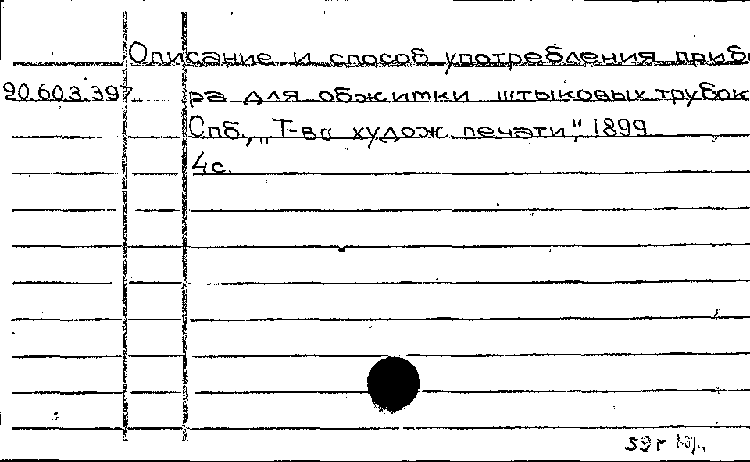 Описание и способ употребления прибо
20.603.397 ра для обжимки штыковых трубок
Спб., „Т-во худож. печати", 1899
4с.
59г